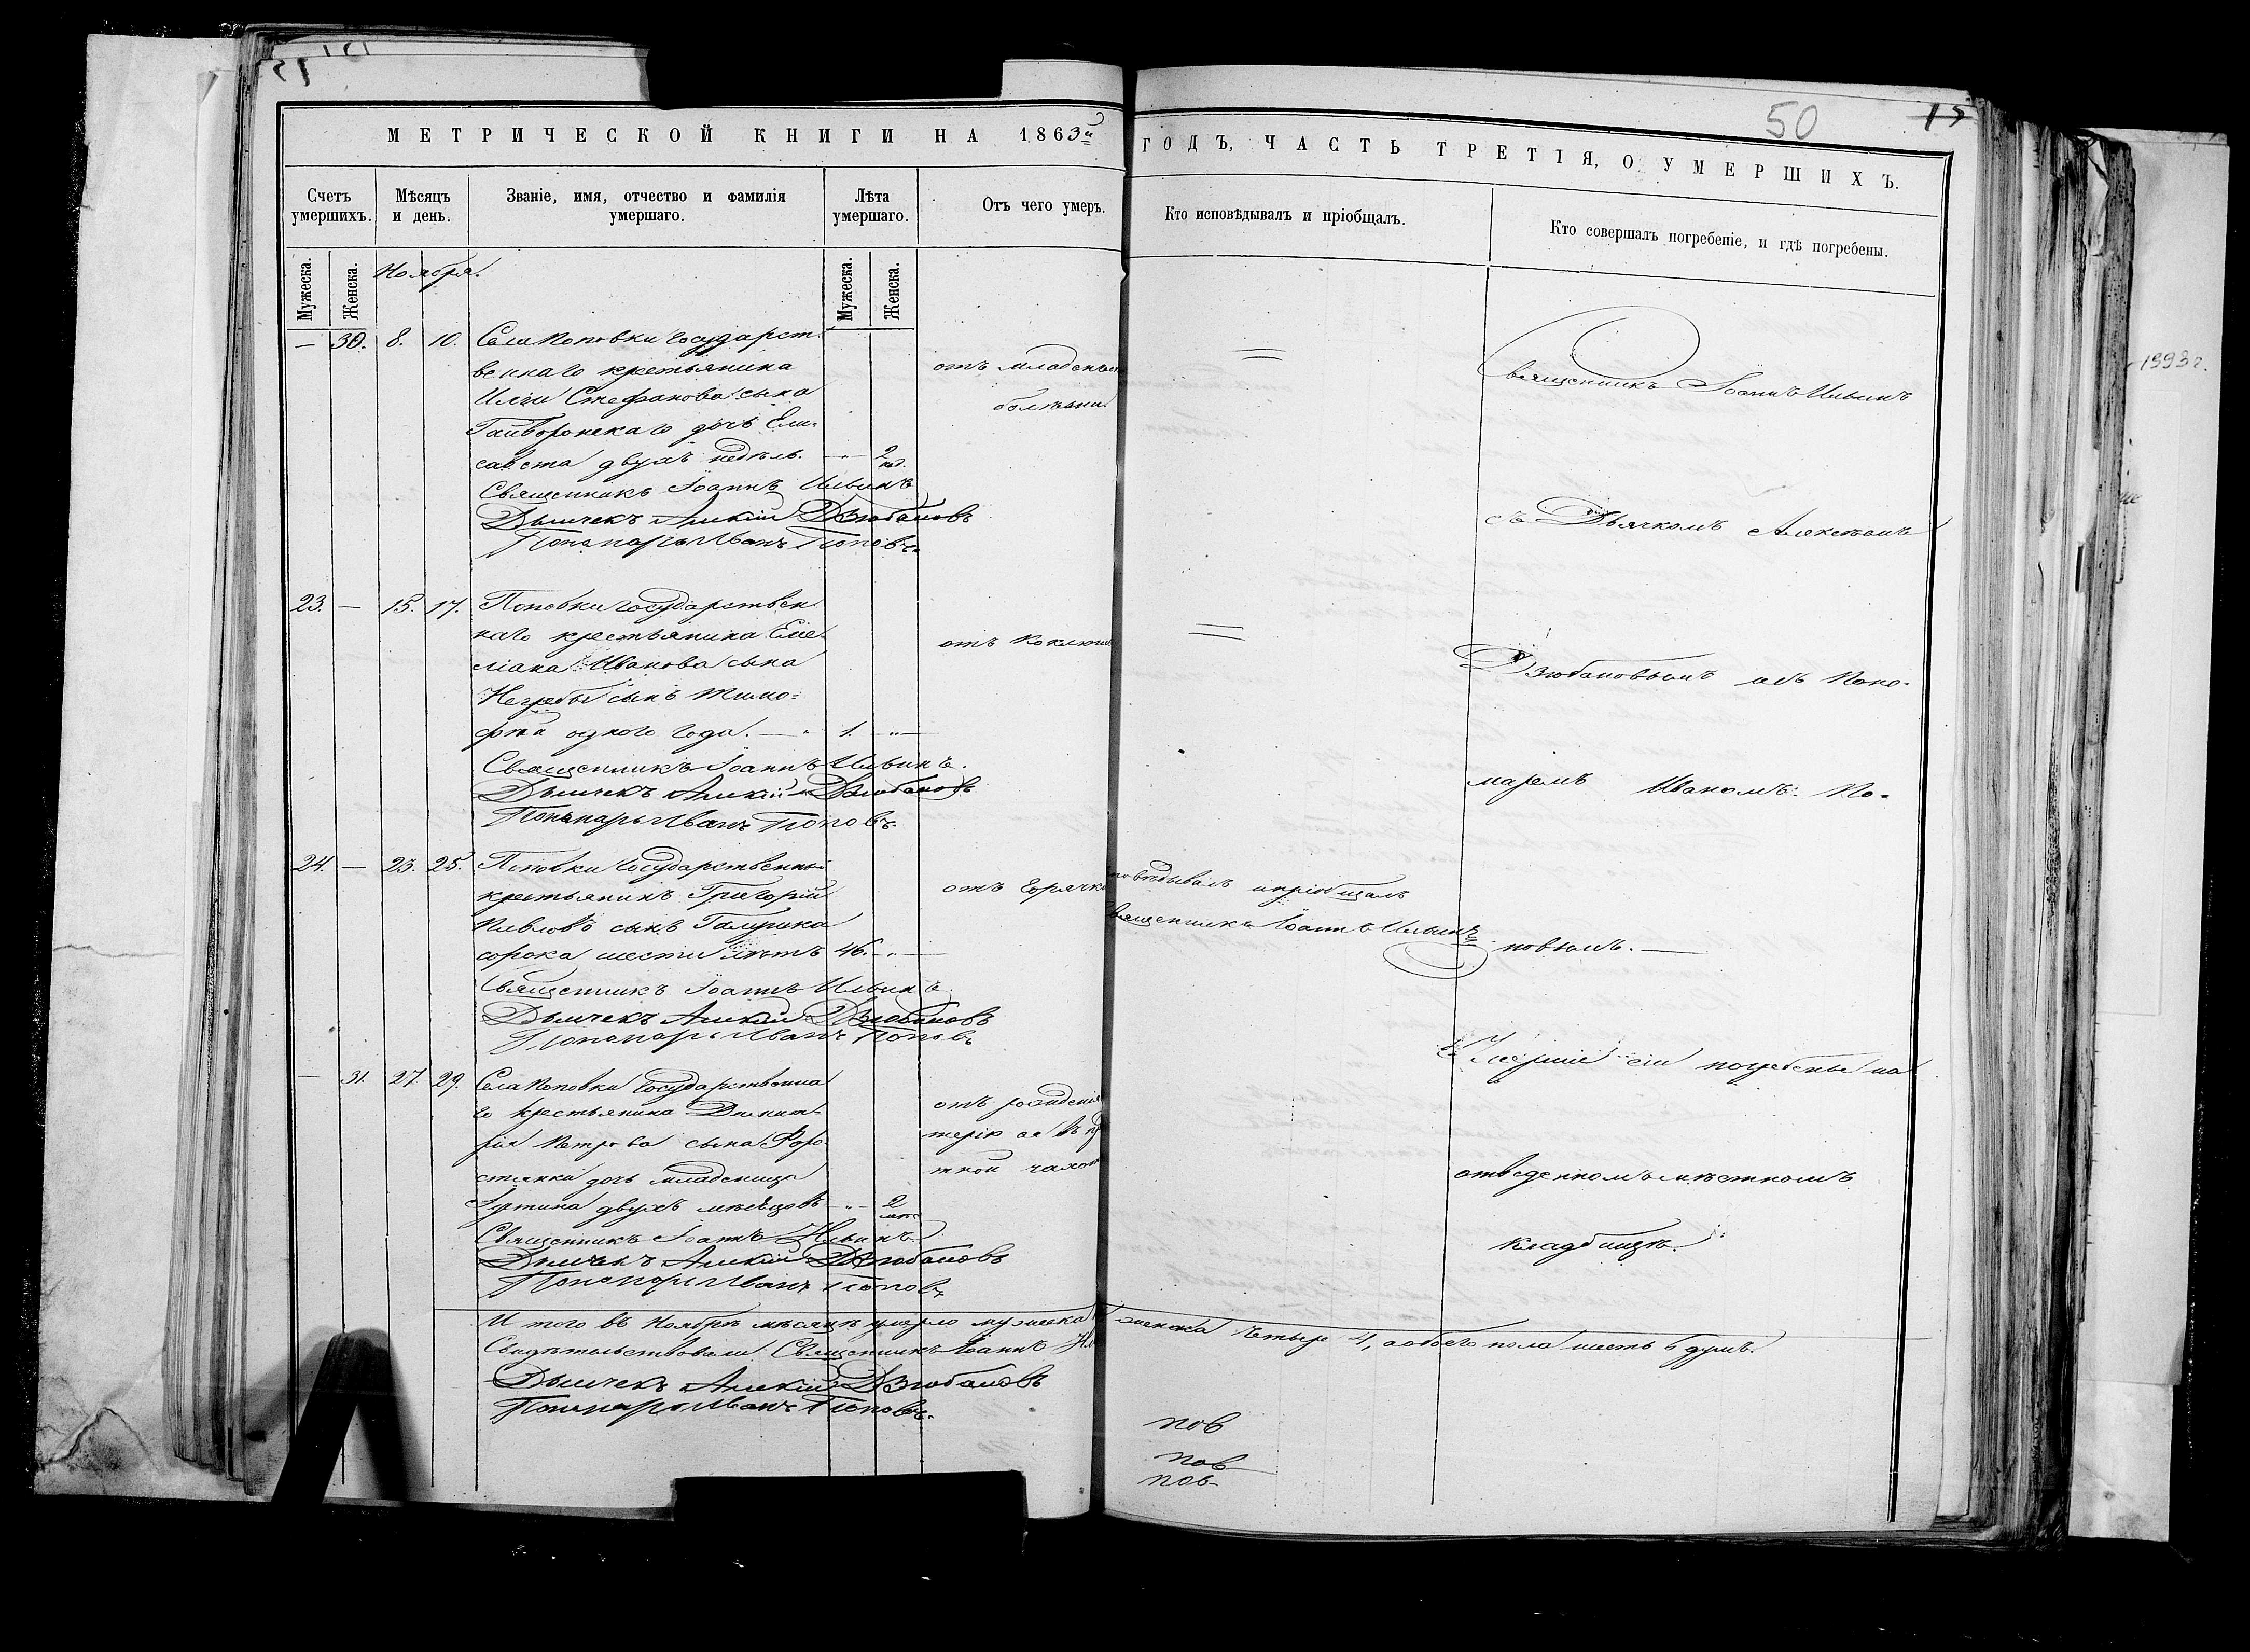 50
15
1993 г.
МЕТРИЧЕСКОЙ КНИГИ НА 1863й
ГОДЪ, ЧАСТЬ ТРЕТІЯ, О УМЕРШИХЪ.
Счетъ умершихъ.
Мѣсяцъ и день.
Званіе, имя, отчество и фамилія умершаго.
Лѣта умершаго.
Отъ чего умеръ.
Кто исповѣдывалъ и пріобщалъ.
Кто совершалъ погребеніе, и гдѣ погребены.
Мужеска.
Женска.
Ноября.
Мужеска.
Женска.
— 30. 8. 10. Села Поповки Государст-
веннаго крестьянина
Иліи Стефанова сына
Гайворонскаго дочь Ели-
савета двухъ недѣль. — 2 нед.
отъ младенч
болѣзни
Священникъ Іоаннъ Ильинъ
Дьячекъ Алексій Дзюбановъ
Пономарь Иванъ Поповъ
23. — 15. 17. Поповки Государствен
наго крестьянина Еме-
ліана Иванова сына
Негребы сынъ Тимо-
фей одного года. — 1. —
отъ Коклюш
Священникъ Іоаннъ Ильинъ.
Дьячекъ Алексій Дзюбановъ
Пономарь Иванъ Поповъ.
24. — 23. 25. Поповки Государственный
крестьянинъ Григорій
Павловъ сынъ
сорока шести лѣтъ 46. —
отъ Горячк
повѣдывалъ и пріобщалъ
вященникъ Іоаннъ Ильинъ
Священникъ Іоаннъ Ильинъ
Дьячекъ Алексій Дзюбановъ
Пономарь Иванъ Поповъ
— 31. 27. 29. Села Поповки Государственна
го крестьянина Димит-
рія Петрова сына
дочь младеница
двухъ мѣсяцовъ — 2
отъ рожденія
Священникъ Іоаннъ Ильинъ.
Дьячекъ Алексій Дзюбановъ
Пономарь Иванъ Поповъ
И того въ Ноябрѣ мѣсяцѣ умерло мужеска
женска четыре 4, а обоего пола шесть 6 душъ.
Свидѣтельствовали Священникъ Іоаннъ
Дьячекъ Алексій Дзюбановъ
Пономарь Иванъ Поповъ.
Священникъ Іоаннъ Ильинъ
съ Дьячкомъ Алексѣемъ
Дзюбановымъ и съ Поно-
маремъ Иваномъ По-
повымъ. —
Умершіе сіи погребены на
отведенномъ мѣстномъ
кладбищѣ.
пов
пов
пов